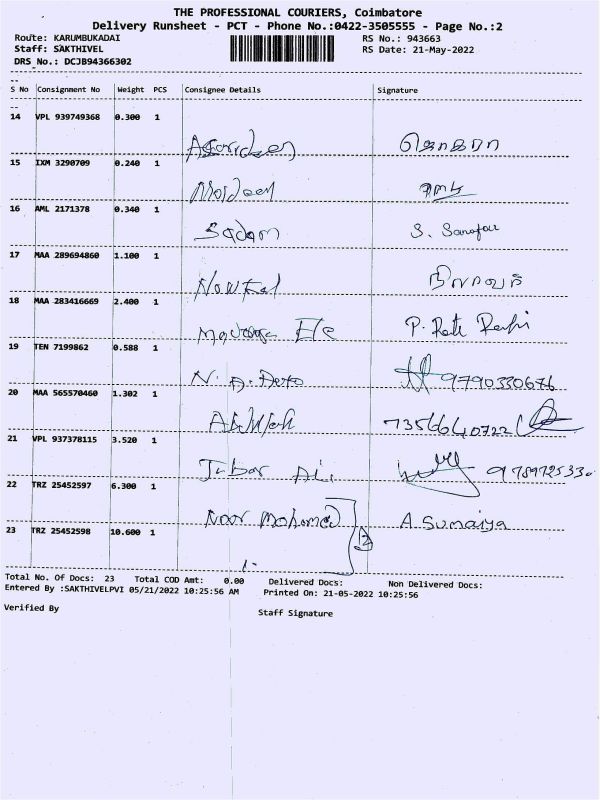 THE PROFESSIONAL COURIERS, Coimbatore
Delivery Runsheet - PCT - Phone No.:0422-3505555 - Page No.:2
Route: KARUMBUKADAI RS No.: 943663
Staff: SAKTHIVEL RS Date: 21-May-2022
DRS No.: DCJB94366302
S No Consignment No Weight PCS Consignee Details Signature
14 VPL 939749368 0.300 1
15 IXM 3290709 0.240 1
16 AML 2171378 0.340 1
Sadam
17 MAA 289694860 1.100 1
Nowfal
18 MAA 283416669 2.400 1
19 TEN 7199862 0.588 1
9790330676
20 MAA 565570460 1.302 1
7356640722
21 VPL 937378115 3.520 1
Jubar Ali
22 TRZ 25452597 6.300 1
Noor Mohamed A. Sumaiya
23 TRZ 25452598 10.600 1
2
Total No. Of Docs: 23 Total COD Amt: 0.00 Delivered Docs: Non Delivered Docs:
Entered By :SAKTHIVELPVI 05/21/2022 10:25:56 AM Printed On: 21-05-2022 10:25:56
Verified By Staff Signature